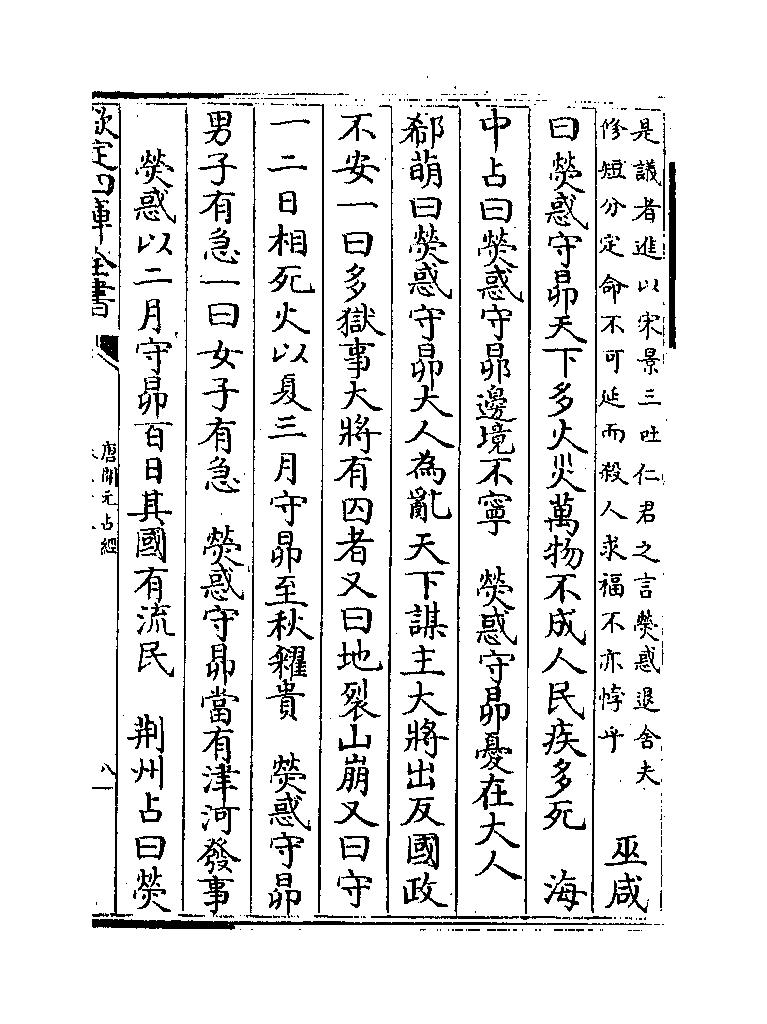 是議者進以宋景三吐仁君之言熒惑退舍夫
脩短分定命不可延而殺人求福不亦悖乎
巫咸
曰熒惑守昴天下多火災萬物不成人民疾多死　海
中占曰熒惑守昴邊境不寧　熒惑守昴憂在大人
郗萌曰熒惑守昴大人為亂天下謀主大將出反國政
不安一曰多獄事大將有囚者又曰地裂山崩又曰守
一二日相死火以夏三月守昴至秋糴貴　熒惑守昴
男子有急一曰女子有急　熒惑守昴當有津河發事
熒惑以二月守昴百日其國有流民　荆州占曰熒
欽定四庫全書
唐開元占經
八